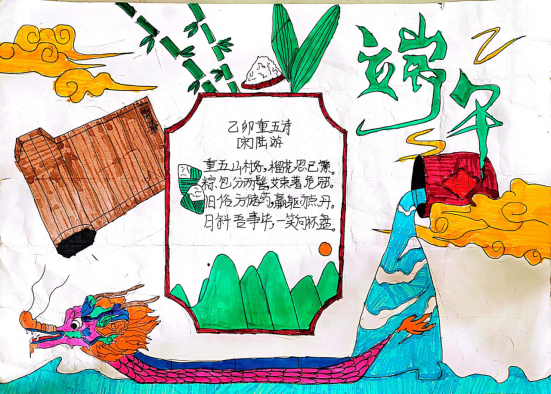 端午
乙卯重五诗
宋陆游
重五山村好，榴花忽已繁。
粽包分两髻，艾束著危冠。
旧俗方储药，羸躯亦点丹。
日斜吾事毕，一笑向杯盘。